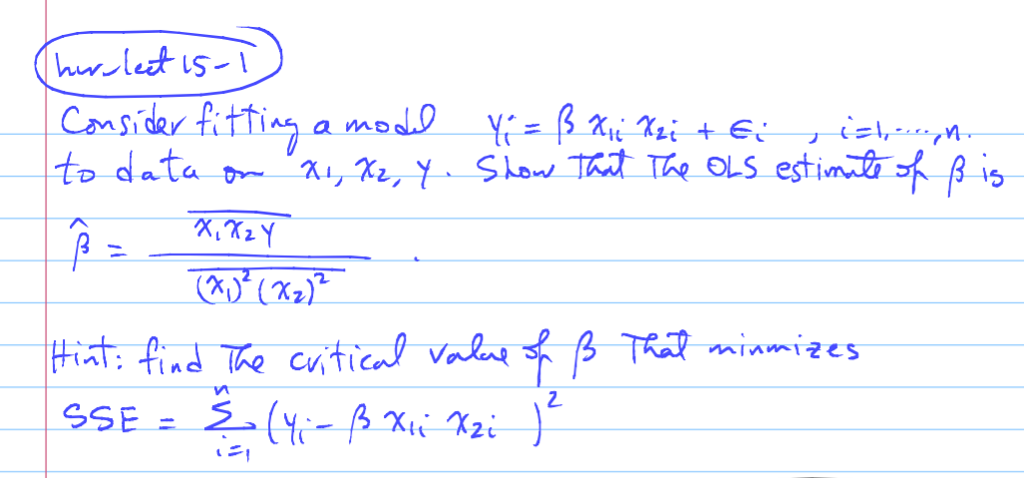 hw_lect 15-1
Consider fitting a model yᵢ = β x₁ᵢ x₂ᵢ + ϵᵢ , i=1,....,n.
to data on x₁, x₂, y. Show That The OLS estimate of β is
β̂ = \frac{\overline{x₁x₂y}}{\overline{(x₁)²(x₂)²}} .
Hint: find The critical value of β That minmizes
SSE = \sum_{i=1}^{n} (yᵢ - β x₁ᵢ x₂ᵢ )²